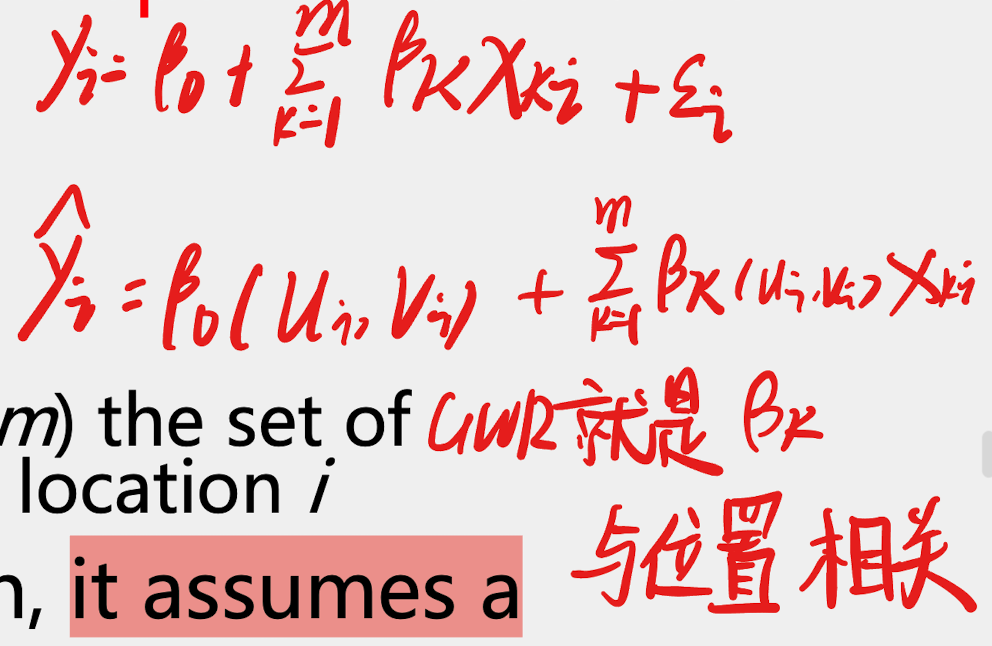 yᵢ = β₀ + Σ_{k=1}^{m} βₖXₖᵢ + εᵢ
ŷᵢ = β₀(uᵢ, vᵢ) + Σ_{k=1}^{m} βₖ(uᵢ, vᵢ)Xₖᵢ
m) the set of GWR就是 βₖ
location i
与位置相关
n, it assumes a